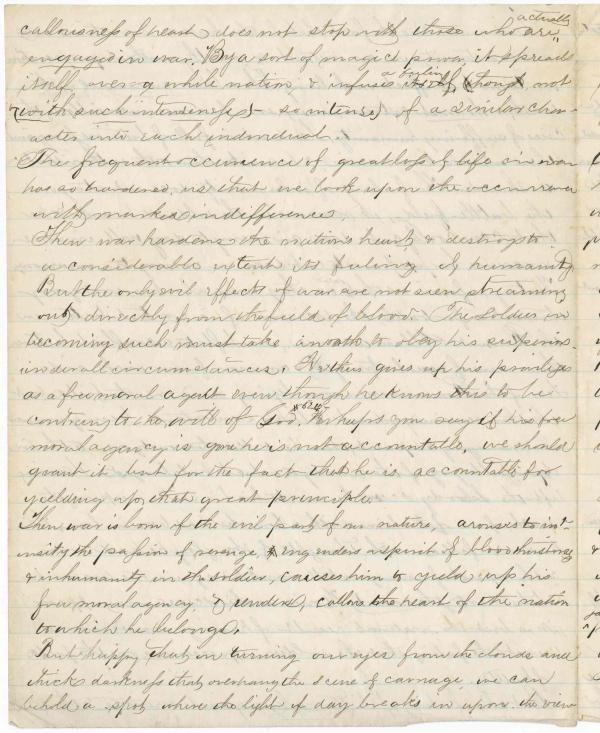 actually
callousness of heart does not stop with those who are
engaged in war. By a sort of magic power it spreads
itself over a whole nation & infuses a feeling (though not
with such intenseness) so intense of a similar char-
acter into each individual.
The frequent occurrence of great loss of life in war
has so hardened us that we look upon the occurrence
with marked indifference.
Then war hardens the nations heart & destroys to
a considerable extent its feeling of humanity
But the only evil effects of war are not seen streaming
out directly from the field of blood. The soldier on
becoming such must take an oath to obey his superiors
under all circumstances. He thus gives up his privileges
as a free moral agent even though he knows this to be
contrary to the will of God. Perhaps you say if his free
moral agency is gone he is not accountable, we should
grant it but for the fact that he is accountable for
yielding up that great principle.
Then war is born of the evil part of our nature, arouses to int-
ensity the passion of revenge, engenders a spirit of bloodthirstiness
& inhumanity in the soldier, causes him to yield up his
free moral agency & renders callous the heart of the nation
to which he belongs.
But happy that in turning our eyes from the clouds and
thick darkness that overhang the scene of carnage we can
behold a spot where the light of day breaks in upon the view